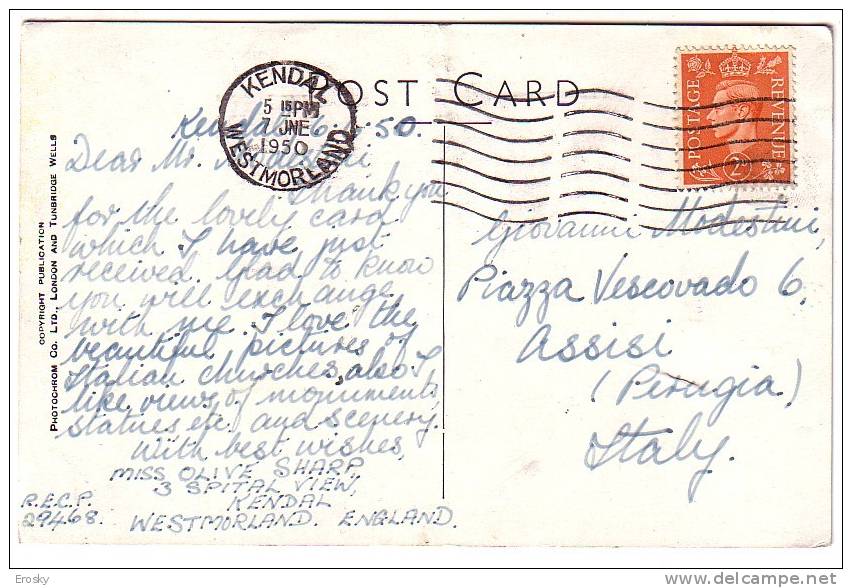 POST CARD
KENDAL
5 15PM
7 JNE
1950
WESTMORLAND
POSTAGE REVENUE
2D
COPYRIGHT PUBLICATION
PHOTOCHROM CO. LTD., LONDON AND TUNBRIDGE WELLS
Kendal 6 50.
Dear Mr.
Thank you
for the lovely card
which I have just
received. Glad to know
you will exchange
with me. I love the
beautiful pictures of
Italian churches, also I
like views of monuments
statues etc and scenery.
With best wishes,
MISS OLIVE SHARP,
3 SPITAL VIEW,
KENDAL
WESTMORLAND. ENGLAND.
R.E.C.P.
29468.
Giovanni Modestini,
Piazza Vescovado 6,
Assisi
(Perugia)
Italy.
Erosky
http://erosky.delcampe.net